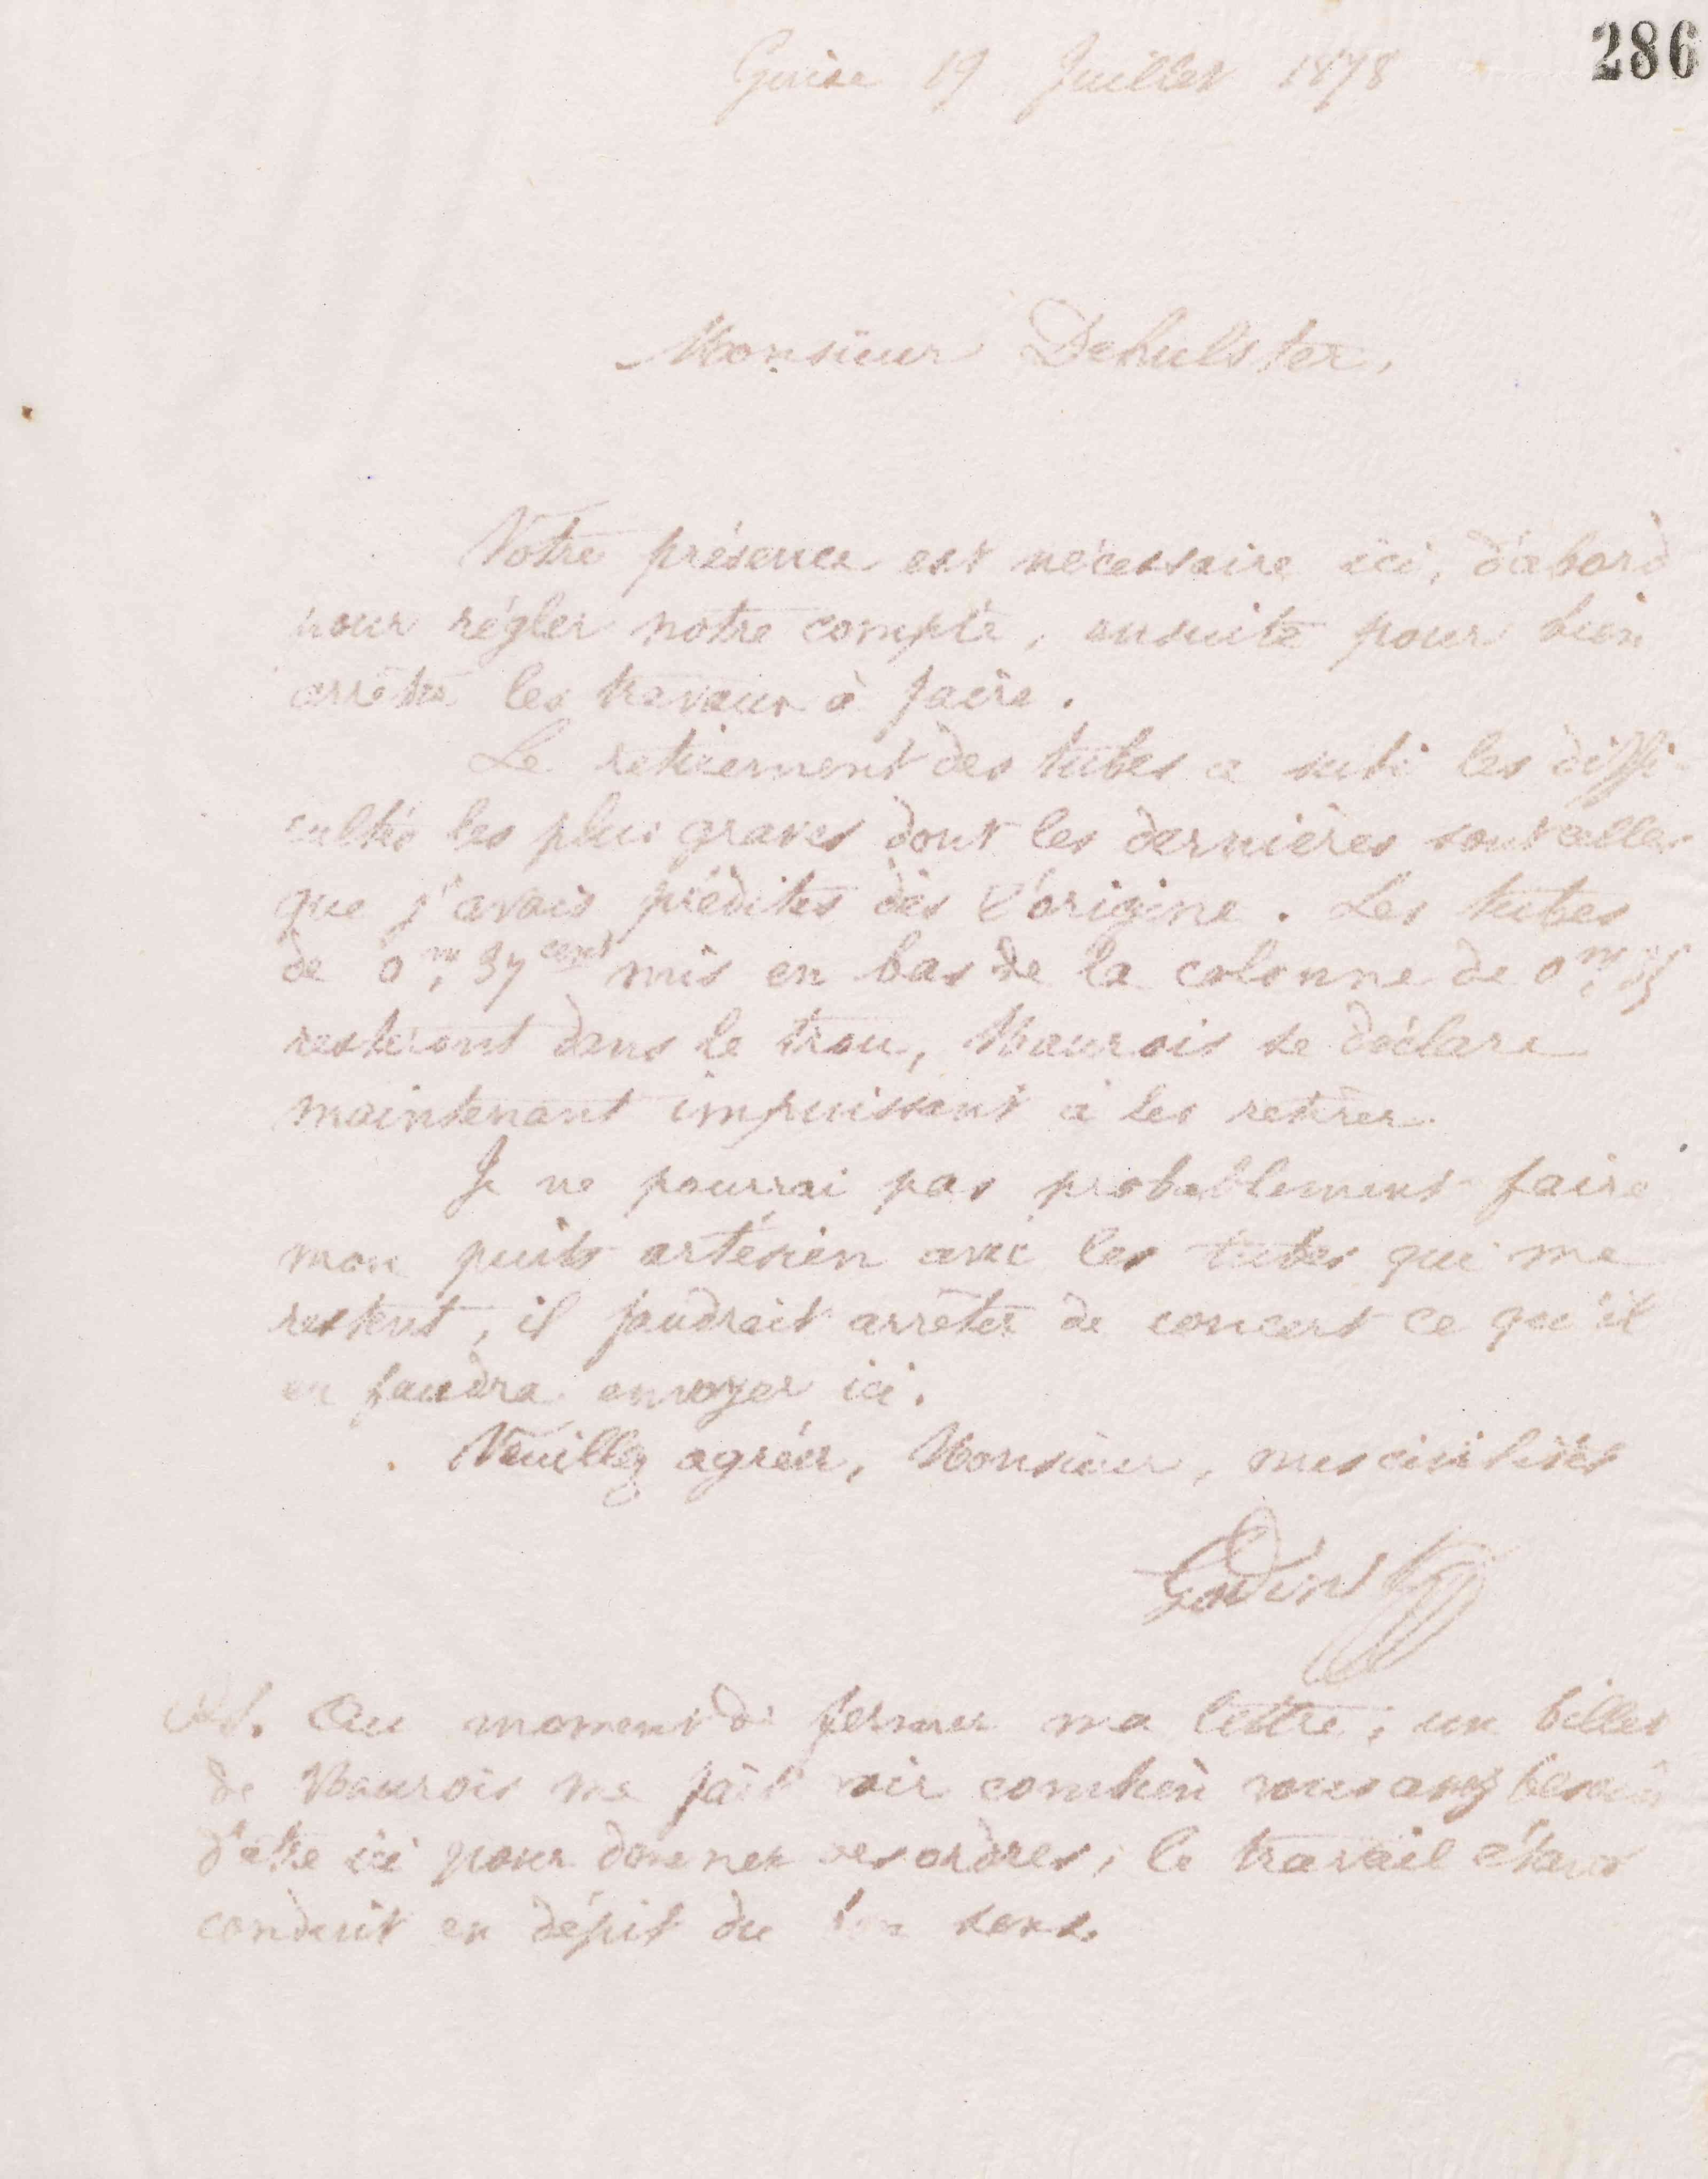 286
Guise 19 Juillet 1878
Monsieur Dehulster,
Votre présence est nécessaire ici, d'abord
pour régler notre compte, ensuite pour bien
arrêter les travaux à faire.
Le retirement des tubes a subi les diffi-
cultés les plus graves dont les dernières sont celles
que j'avais prédites dès l'origine. Les tubes
de 0m,37cent mis en bas de la colonne de 0m,
resteront dans le trou, Maurois se déclare
maintenant impuissant à les retirer.
Je ne pourrai pas probablement faire
mon puits artésien avec les tubes qui me
restent, il faudrait arrêter de concert ce qu'il
en faudra envoyer ici.
Veuillez agréer, Monsieur, mes civilités
Godin
Au moment de fermer ma lettre, un billet
de Maurois me fait voir combien vous avez besoin
d'être ici pour donner vos ordres, le travail étant
conduit en dépit du bon sens.